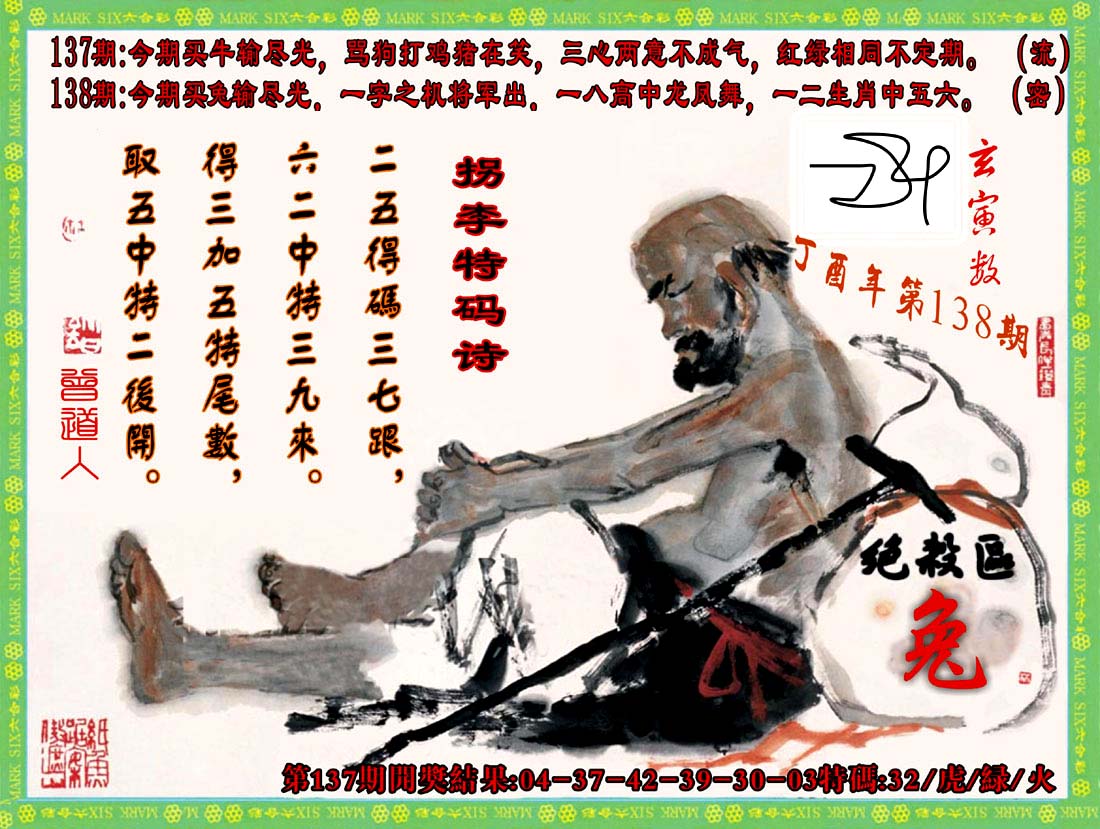 MARK SIX六合彩
137期:今期买牛输尽光,骂狗打鸡猪在笑,三心两意不成气,红绿相同不定期。 (流)
138期:今期买兔输尽光.一字之机将军出.一八高中龙凤舞,一二生肖中五六。 (密)
玄寅数
丁酉年第138期
拐李特码诗
二五得碼三七跟,
六二中特三九來。
得三加五特尾數,
取五中特二後開。
曾道人
绝殺區
兔
第137期開獎結果:04-37-42-39-30-03特碼:32/虎/綠/火